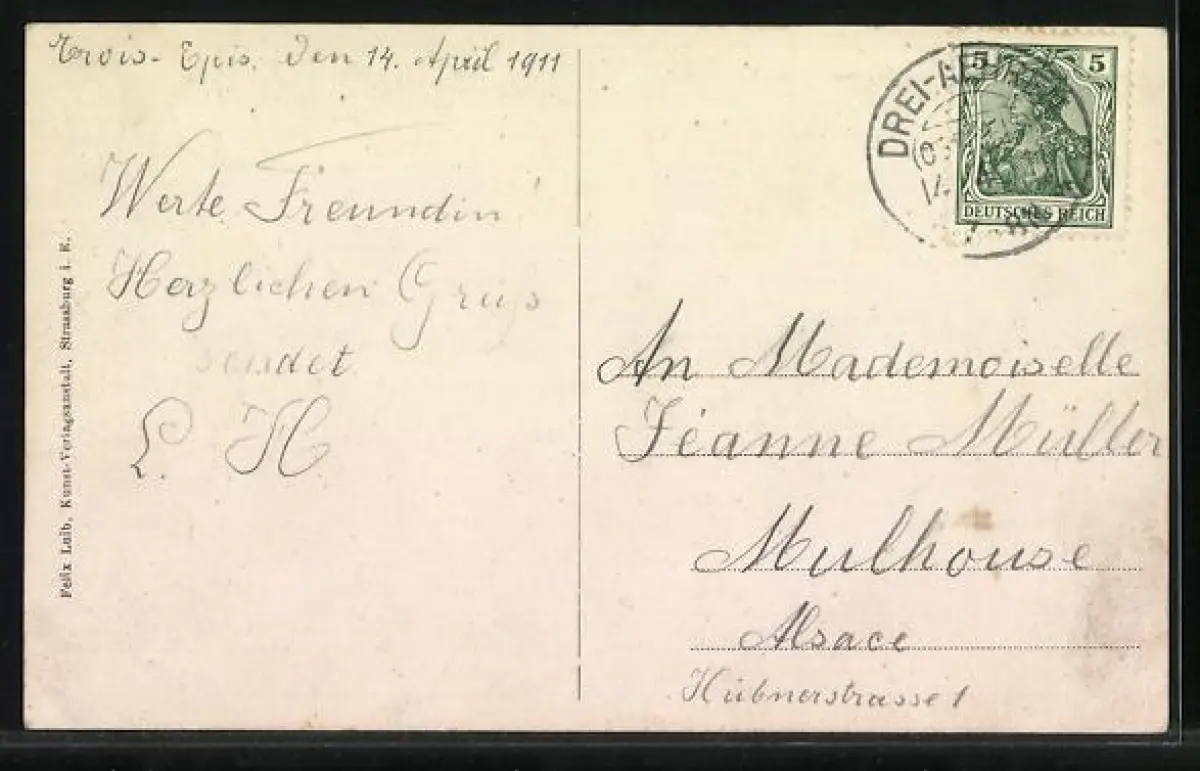 Trois-Epis. Den 14. April 1911
Werte Freundin!
Herzlichen Gruß
sendet
L. H
Felix Luib, Kunst-Verlagsanstalt, Strassburg i. E.
5 5
DEUTSCHES REICH
DREI-
An Mademoiselle
Jéanne Müller
Mulhouse
Alsace
Hübnerstrasse 1